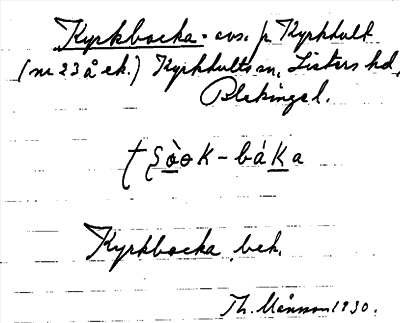 Kyrkbacka - avs. p. Kyrkhult
(nr 23 å ek.) Kyrkhults sn, Listers hd,
Blekinge l.
Kyrkbacka, bek.
Th. Månsson 1930.